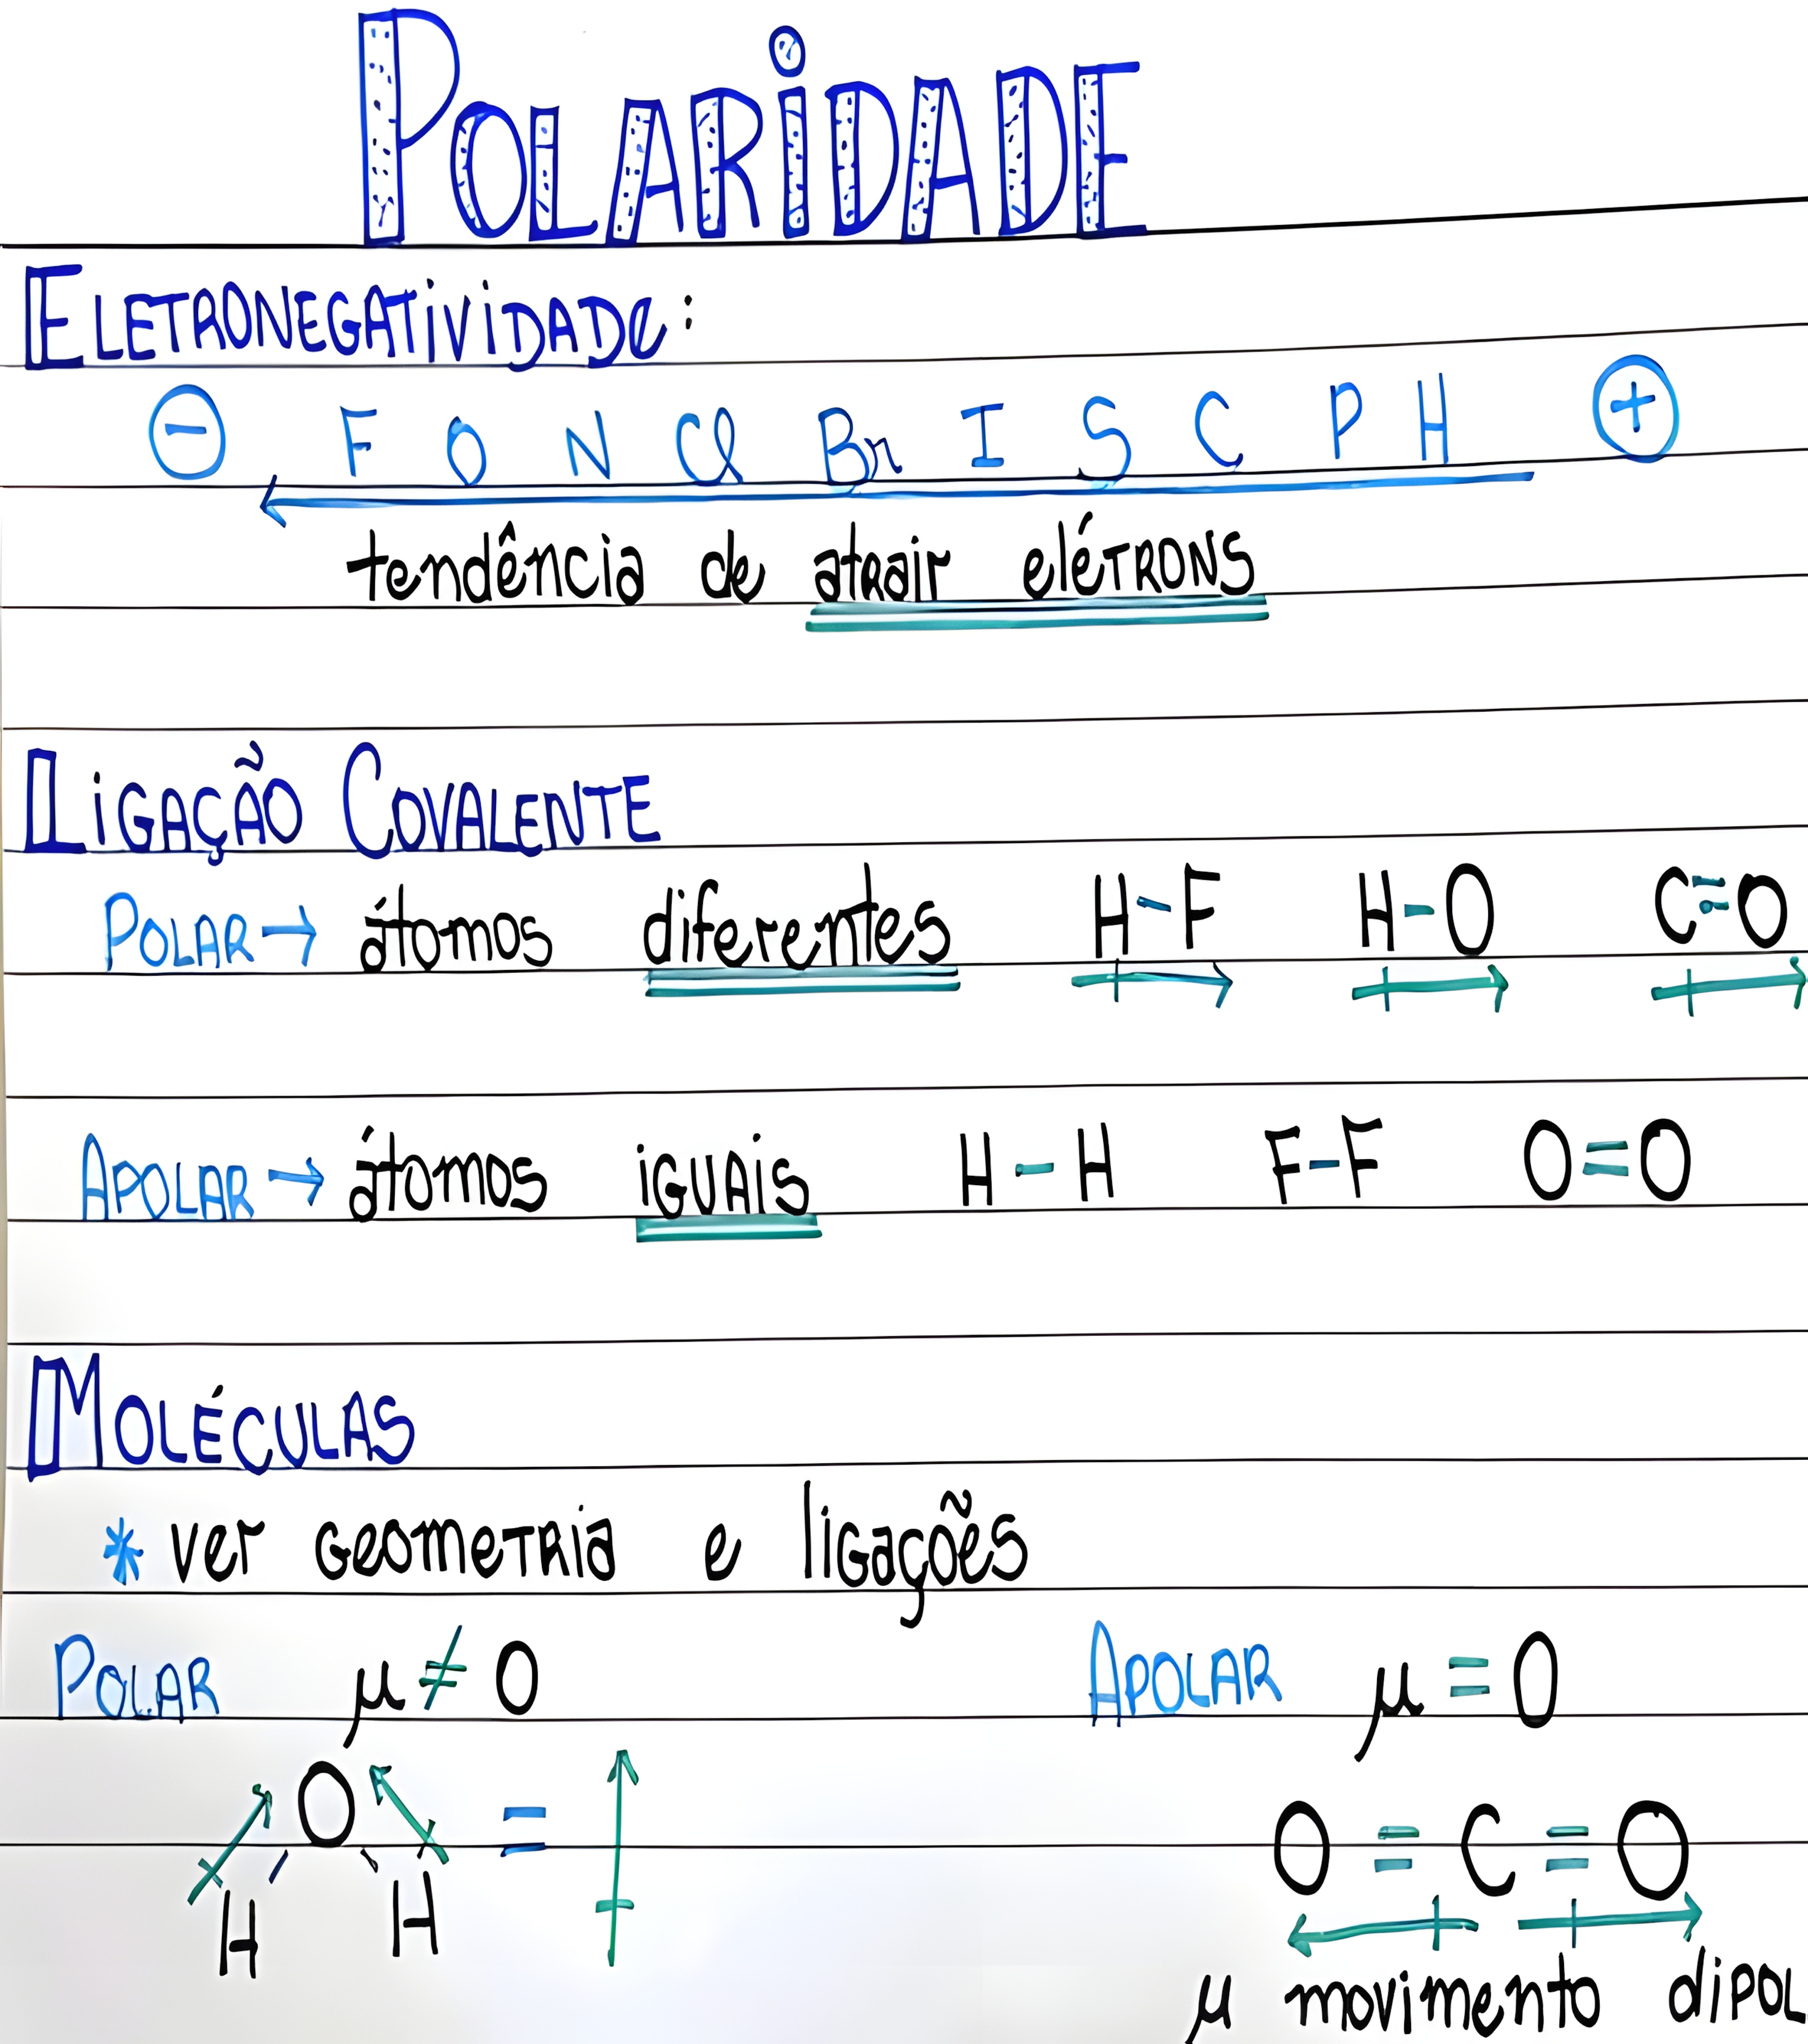 POLARIDADE
ELETRONEGATIVIDADE:
⊖ F O N Cl Br I S C P H ⊕
tendência de atrair elétrons
LIGAÇÃO COVALENTE
POLAR → átomos diferentes H-F H-O C=O
APOLAR → átomos iguais H-H F-F O=O
MOLÉCULAS
* ver geometria e ligações
POLAR μ ≠ 0 APOLAR μ = 0
O =
H H
O=C=O
μ movimento dipol